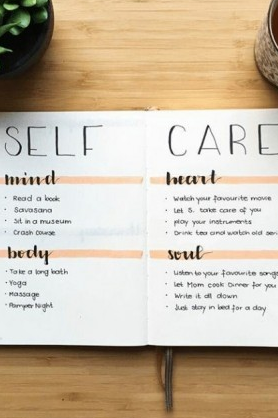 SELF CARE
mind
Read a book
Savasana
Sit in a museum
Crash course
body
Take a long bath
Yoga
Massage
Pamper Night
heart
Watch your favourite movie
Let S. take care of you
play your instruments
Drink tea and watch old
soul
Listen to your favourite songs
let Mom cook Dinner for you
Write it all down
Just stay in bed for a day